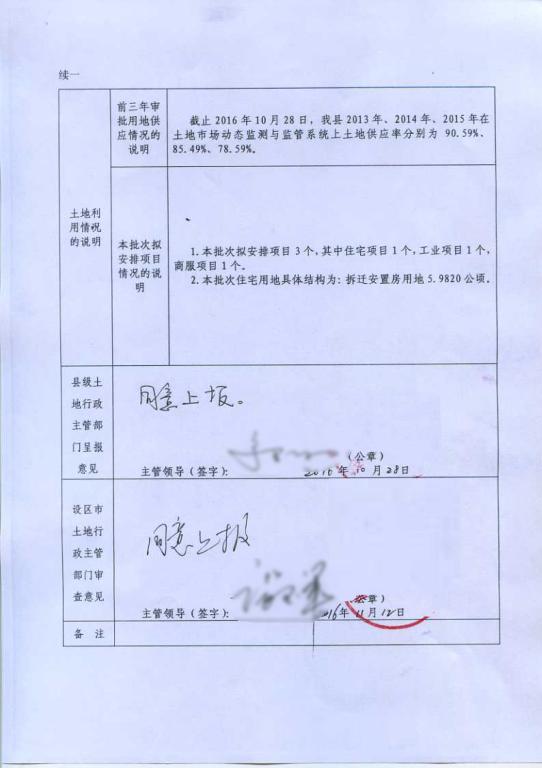 续一
前三年审
批用地供
应情况的
说明
截止2016年10月28日，我县2013年、2014年、2015年在
土地市场动态监测与监管系统上土地供应率分别为 90.59%、
85.49%、78.59%。
土地利
用情况
的说明
本批次拟
安排项目
情况的说
明
1.本批次拟安排项目3个，其中住宅项目1个，工业项目1个，
商服项目1个。
2.本批次住宅用地具体结构为：拆迁安置房用地5.9820公顷。
县级土
地行政
主管部
门呈报
意见
同意上报。
（公章）
主管领导（签字）：
2016年10月28日
设区市
土地行
政主管
部门审
查意见
同意上报
公章）
主管领导（签字）：
16年11月12日
备 注